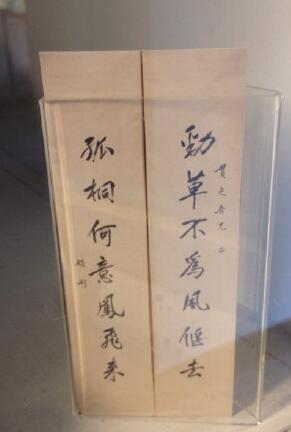 勁草不爲風偃去
貫之吾兄正
孤桐何意鳳飛来